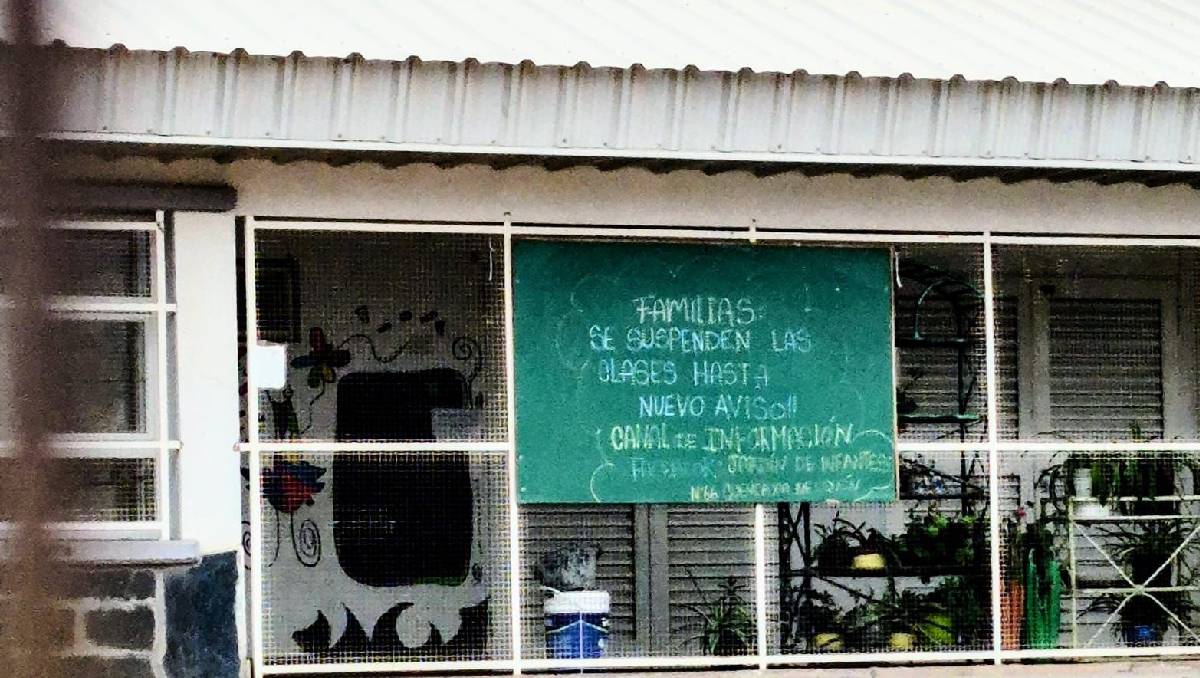 FAMILIAS:
SE SUSPENDEN LAS
CLASES HASTA
NUEVO AVISO!!
CANAL DE INFORMACIÓN
FACEBOOK: JARDIN DE INFANTES
N°66